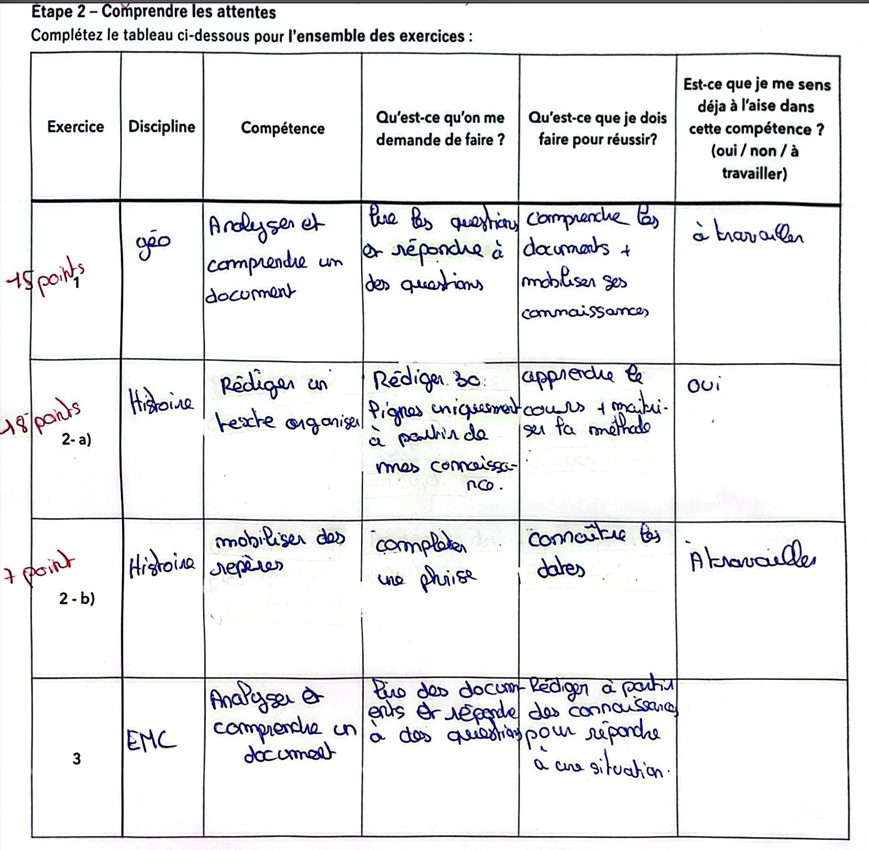 Étape 2 – Comprendre les attentes
Complétez le tableau ci-dessous pour l'ensemble des exercices :
Exercice
Discipline
Compétence
Qu'est-ce qu'on me
demande de faire ?
Qu'est-ce que je dois
faire pour réussir?
Est-ce que je me sens
déja à l'aise dans
cette compétence ?
(oui / non / à
travailler)
15 points
1
géo
Analyser et
comprendre un
document
lire les questions
et répondre à
des questions
comprendre les
documents +
mobiliser ses
connaissances
à travailler
18 points
2- a)
Histoire
Rédiger un
texte organiser
Rédiger 30
lignes uniquement
à partir de
mes connaissa-
nce.
apprendre le
cours + maitri-
ser la méthode
oui
7 point
2 - b)
Histoire
mobiliser des
repères
compléter
une phrise
connaître les
dates
À travailler
3
EMC
Analyser et
comprendre un
document
lire des docum-
ents et répondre
à des questions
Rédiger à partir
des connaissances
pour répondre
à une situation.